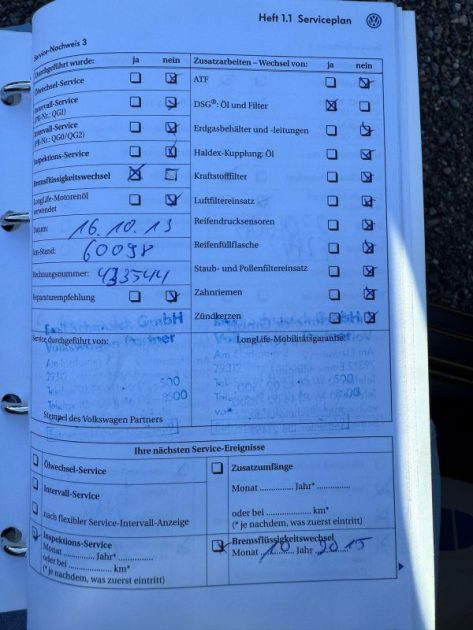 Heft 1.1 Serviceplan
Service-Nachweis 3
Durchgeführt wurde: ja nein
Ölwechsel-Service
Intervall-Service
(PR-Nr.: QG1)
Intervall-Service
(PR-Nr.: QG0/QG2)
Inspektions-Service
Bremsflüssigkeitswechsel
LongLife-Motorenöl
verwendet
Datum: 16.10.13
km-Stand: 60098
Rechnungsnummer: 433544
Reparaturempfehlung
Zusatzarbeiten – Wechsel von: ja nein
ATF
DSG®: Öl und Filter
Erdgasbehälter und -leitungen
Haldex-Kupplung: Öl
Kraftstofffilter
Luftfiltereinsatz
Reifendrucksensoren
Reifenfüllflasche
Staub- und Pollenfiltereinsatz
Zahnriemen
Zündkerzen
Schmolck GmbH
Volkswagen Partner
Service durchgeführt von:
Stempel des Volkswagen Partners
LongLife-Mobilitätsgarantie
Ihre nächsten Service-Ereignisse
Ölwechsel-Service
Intervall-Service
nach flexibler Service-Intervall-Anzeige
Inspektions-Service
Monat .............. Jahr*..............
oder bei .................. km*
(* je nachdem, was zuerst eintritt)
Zusatzumfänge
Monat .............. Jahr*..............
oder bei .................. km*
(* je nachdem, was zuerst eintritt)
Bremsflüssigkeitswechsel
Monat 10 Jahr 2015